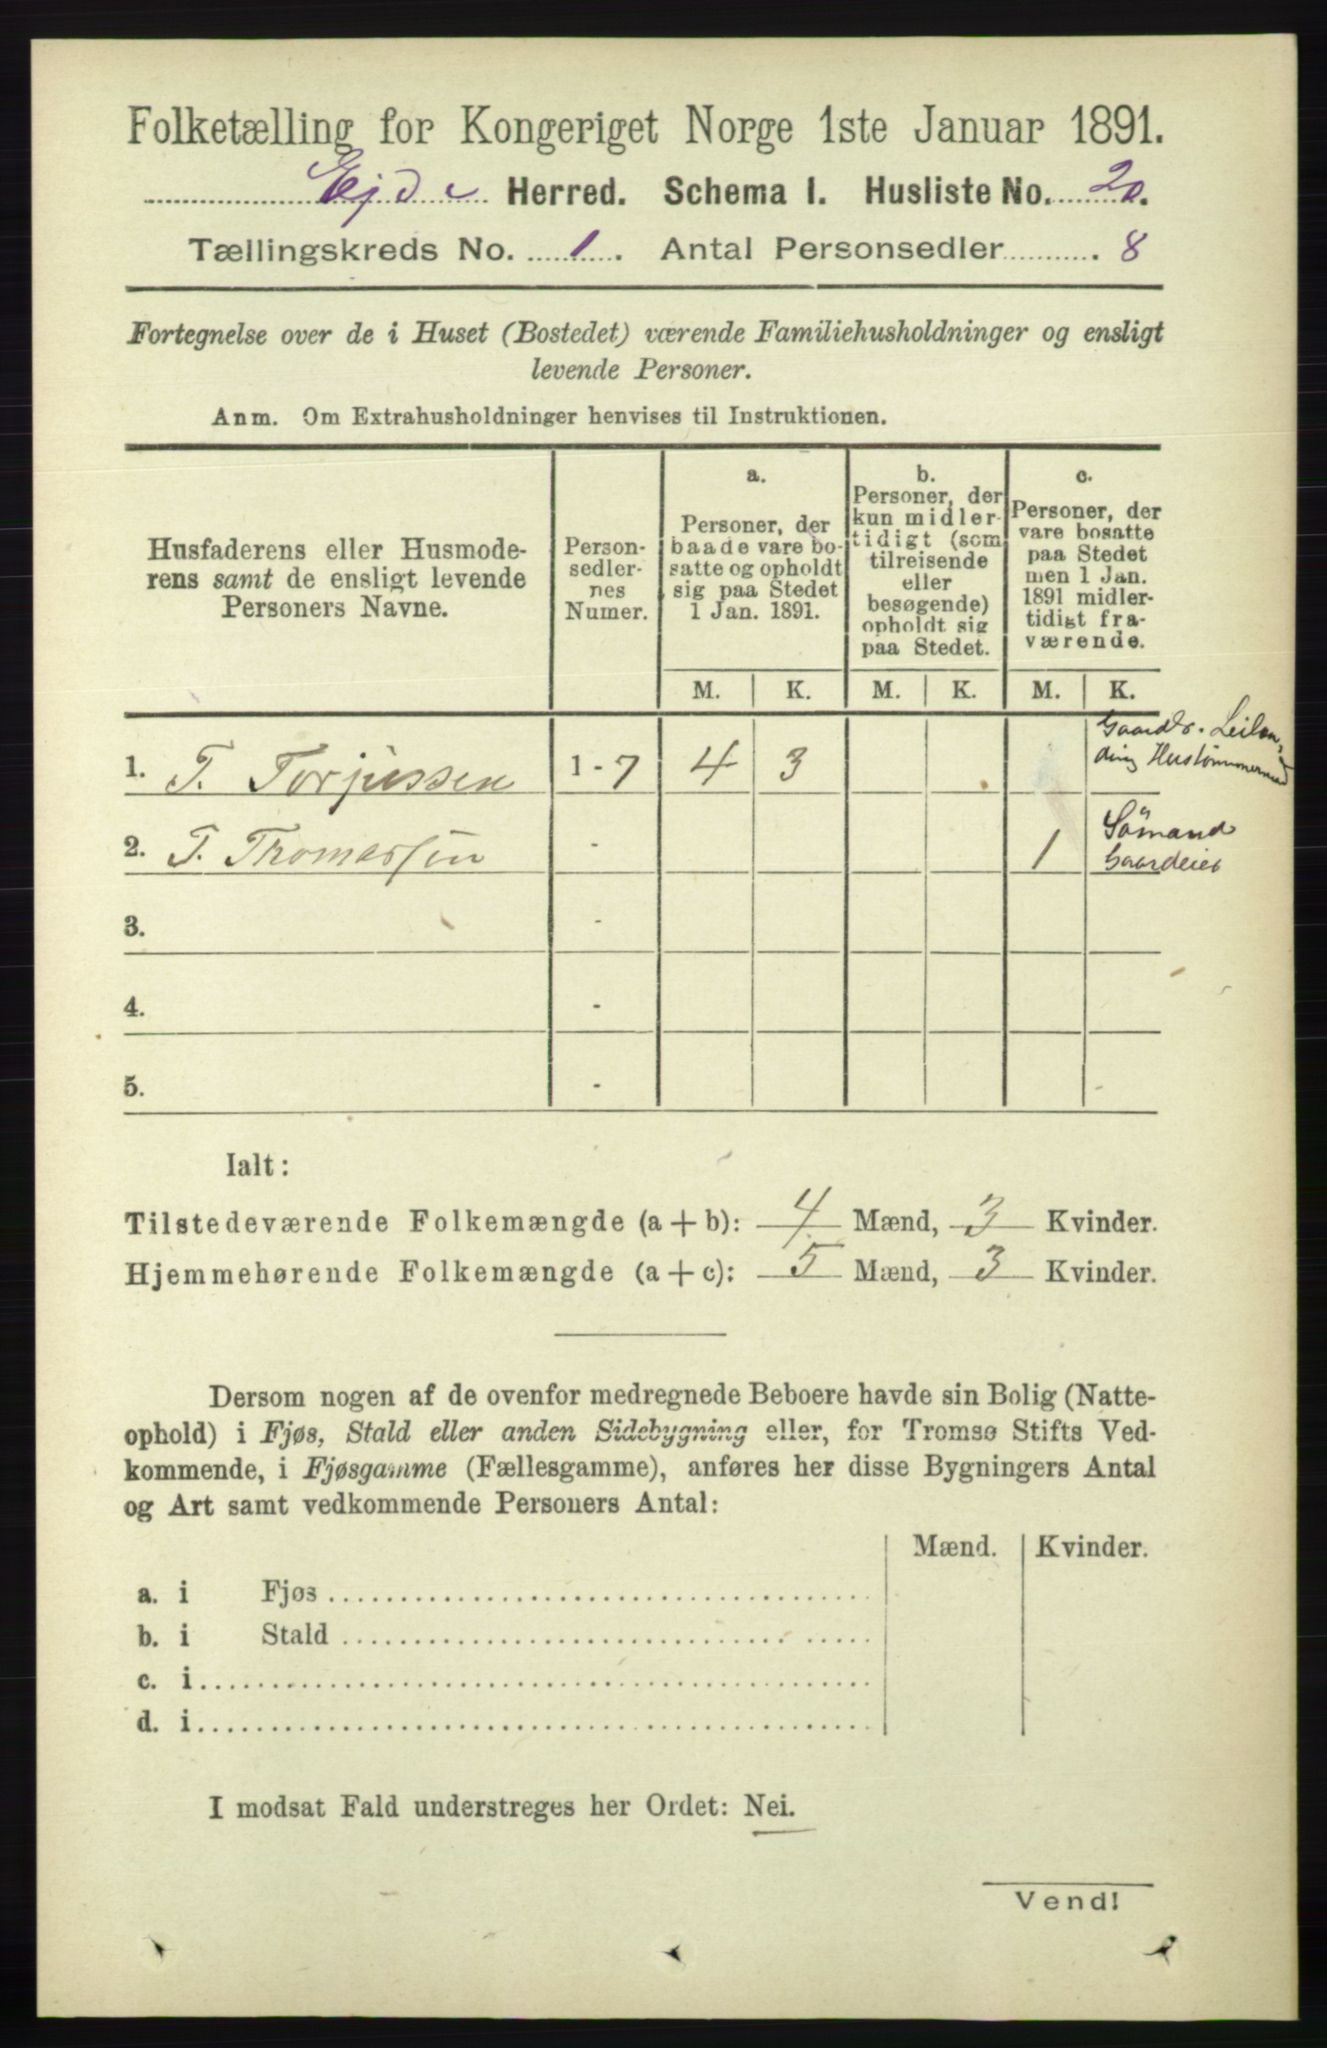 Folketælling for Kongeriget Norge 1ste Januar 1891.
Ejde Herred. Schema I. Husliste No. 20.
Tællingskreds No. 1. Antal Personsedler 8
Fortegnelse over de i Huset (Bostedet) værende Familiehusholdninger og ensligt
levende Personer.
Anm. Om Extrahusholdninger henvises til Instruktionen.
Husfaderens eller Husmode-
rens samt de ensligt levende
Personers Navne.
Person-
sedler-
nes
Numer.
a.
Personer, der
baade vare bo-
satte og opholdt
sig paa Stedet
1 Jan. 1891.
b.
Personer, der
kun midler-
tidigt (som
tilreisende
eller
besøgende)
opholdt sig
paa Stedet.
c.
Personer, der
vare bosatte
paa Stedet
men 1 Jan.
1891 midler-
tidigt fra-
værende.
M. K. M. K. M. K.
1. T. Torjussen 1 - 7 4 3
Gaardbr. Leilæn-
ding Hustømmermand
2. T. Thomassen - 1
Sømand
Gaardeier
3. -
4. -
5. -
Ialt:
Tilstedeværende Folkemængde (a + b): 4 Mænd, 3 Kvinder.
Hjemmehørende Folkemængde (a + c): 5 Mænd, 3 Kvinder.
Dersom nogen af de ovenfor medregnede Beboere havde sin Bolig (Natte-
ophold) i Fjøs, Stald eller anden Sidebygning eller, for Tromsø Stifts Ved-
kommende, i Fjøsgamme (Fællesgamme), anføres her disse Bygningers Antal
og Art samt vedkommende Personers Antal:
Mænd. Kvinder.
a. i Fjøs
b. i Stald
c. i
d. i
I modsat Fald understreges her Ordet: Nei.
Vend!